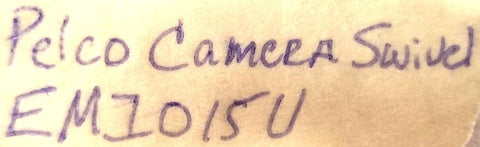 Pelco Camera Swivel
EM1015U